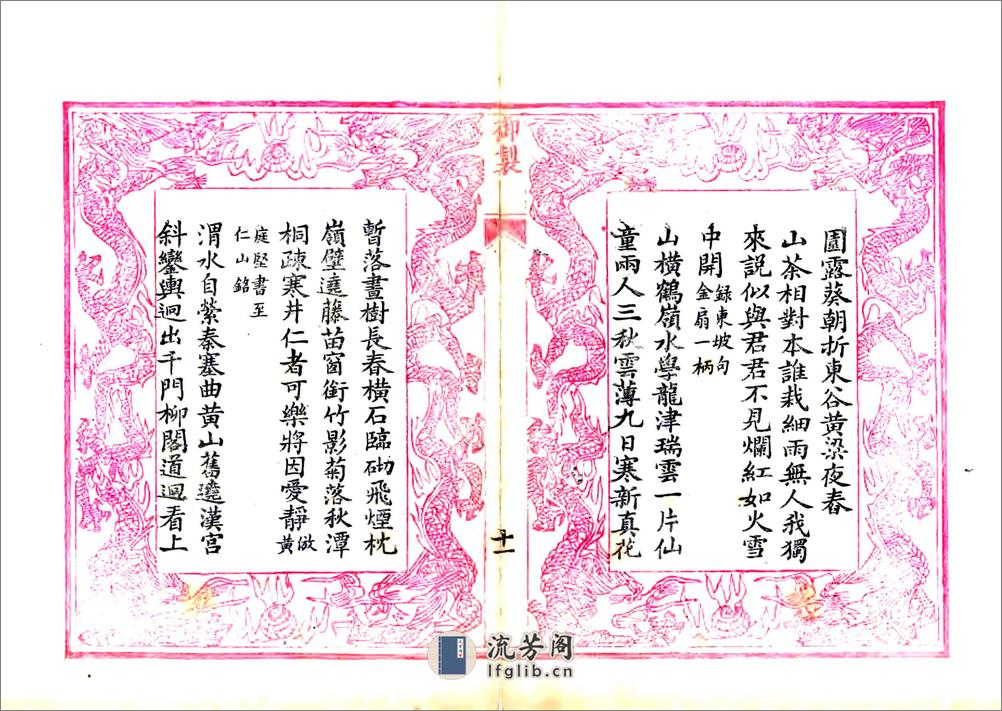 園露葵朝折東谷黃粱夜舂
山茶相對本誰栽細雨無人我獨
來說似與君君不見爛紅如火雪
中開錄東坡句金扇一柄
山橫鶴嶺水學龍津瑞雲一片仙
童兩人三秋雲薄九日寒新真花
御製
十一
暫落畫樹長春橫石臨砌飛煙枕
嶺壁遶藤苗窗銜竹影菊落秋潭
桐疎寒井仁者可樂將因愛靜倣黃
庭堅書至仁山銘
渭水自縈秦塞曲黃山舊遶漢宮
斜鑾輿迥出千門柳閣道迴看上
流芳阁
lfglib.cn